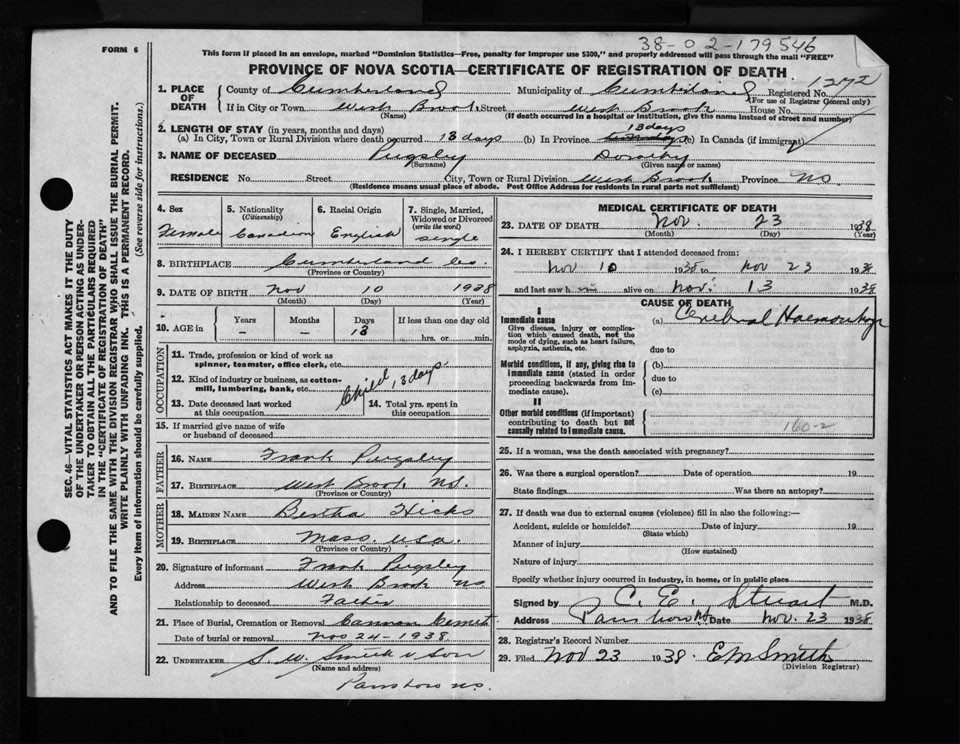 38-02-179546
FORM 6
This form if placed in an envelope, marked "Dominion Statistics—Free, penalty for improper use $300," and properly addressed will pass through the mail "FREE"
PROVINCE OF NOVA SCOTIA—CERTIFICATE OF REGISTRATION OF DEATH
SEC. 46—VITAL STATISTICS ACT MAKES IT THE DUTY
OF THE UNDERTAKER OR PERSON ACTING AS UNDER-
TAKER TO OBTAIN ALL THE PARTICULARS REQUIRED
IN THE "CERTIFICATE OF REGISTRATION OF DEATH"
AND TO FILE THE SAME WITH THE DIVISION REGISTRAR WHO SHALL ISSUE THE BURIAL PERMIT.
WRITE PLAINLY WITH UNFADING INK. THIS IS A PERMANENT RECORD.
Every item of information should be carefully supplied. (See reverse side for instructions.)
1. PLACE OF DEATH
County of Cumberland Municipality of Cumberland Registered No. 1272
(For use of Registrar General only)
If in City or Town West Brook Street West Brook House No.
(Name) (If death occurred in a hospital or institution, give the name instead of street and number)
2. LENGTH OF STAY (in years, months and days)
(a) In City, Town or Rural Division where death occurred 13 days (b) In Province 13 days (c) In Canada (if immigrant)
3. NAME OF DECEASED Pugsley Dorothy
(Surname) (Given name or names)
RESIDENCE No. Street City, Town or Rural Division West Brook Province NS
(Residence means usual place of abode. Post Office Address for residents in rural parts not sufficient)
4. Sex Female
5. Nationality (Citizenship) Canadian
6. Racial Origin English
7. Single, Married, Widowed or Divorced (write the word) single
8. BIRTHPLACE Cumberland Co.
(Province or Country)
9. DATE OF BIRTH Nov 10 1938
(Month) (Day) (Year)
10. AGE in Years Months Days If less than one day old
— — 13 hrs. or min.
OCCUPATION
11. Trade, profession or kind of work as spinner, teamster, office clerk, etc.
12. Kind of industry or business, as cotton-mill, lumbering, bank, etc.
Child 13 days
13. Date deceased last worked at this occupation
14. Total yrs. spent in this occupation
15. If married give name of wife or husband of deceased
FATHER
16. NAME Frank Pugsley
17. BIRTHPLACE West Brook NS.
(Province or Country)
MOTHER
18. MAIDEN NAME Bertha Hicks
19. BIRTHPLACE Mass. USA.
(Province or Country)
20. Signature of informant Frank Pugsley
Address West Brook NS
Relationship to deceased Father
21. Place of Burial, Cremation or Removal Cannon Cemet
Date of burial or removal Nov 24-1938
22. UNDERTAKER S. W. Smith & Son
(Name and address)
Parrsboro NS.
MEDICAL CERTIFICATE OF DEATH
23. DATE OF DEATH Nov. 23 1938
(Month) (Day) (Year)
24. I HEREBY CERTIFY that I attended deceased from:
Nov 10 1938 to Nov 23 1938
and last saw h alive on Nov. 13 1938
CAUSE OF DEATH
I
Immediate cause
Give disease, injury or complication which caused death, not the mode of dying, such as heart failure, asphyxia, asthenia, etc.
(a) Cerebral Haemorrhage
due to
Morbid conditions, if any, giving rise to immediate cause (stated in order proceeding backwards from immediate cause).
(b)
due to
(c)
II
Other morbid conditions (if important) contributing to death but not causally related to immediate cause.
160-2
25. If a woman, was the death associated with pregnancy?
26. Was there a surgical operation? Date of operation 19
State findings Was there an autopsy?
27. If death was due to external causes (violence) fill in also the following:—
Accident, suicide or homicide? Date of injury 19
(State which)
Manner of injury
(How sustained)
Nature of injury
Specify whether injury occurred in industry, in home, or in public place
Signed by C. E. Stuart M.D.
Address Parrsboro NS Date Nov. 23 1938
28. Registrar's Record Number
29. Filed Nov 23 1938 EM Smith
(Division Registrar)